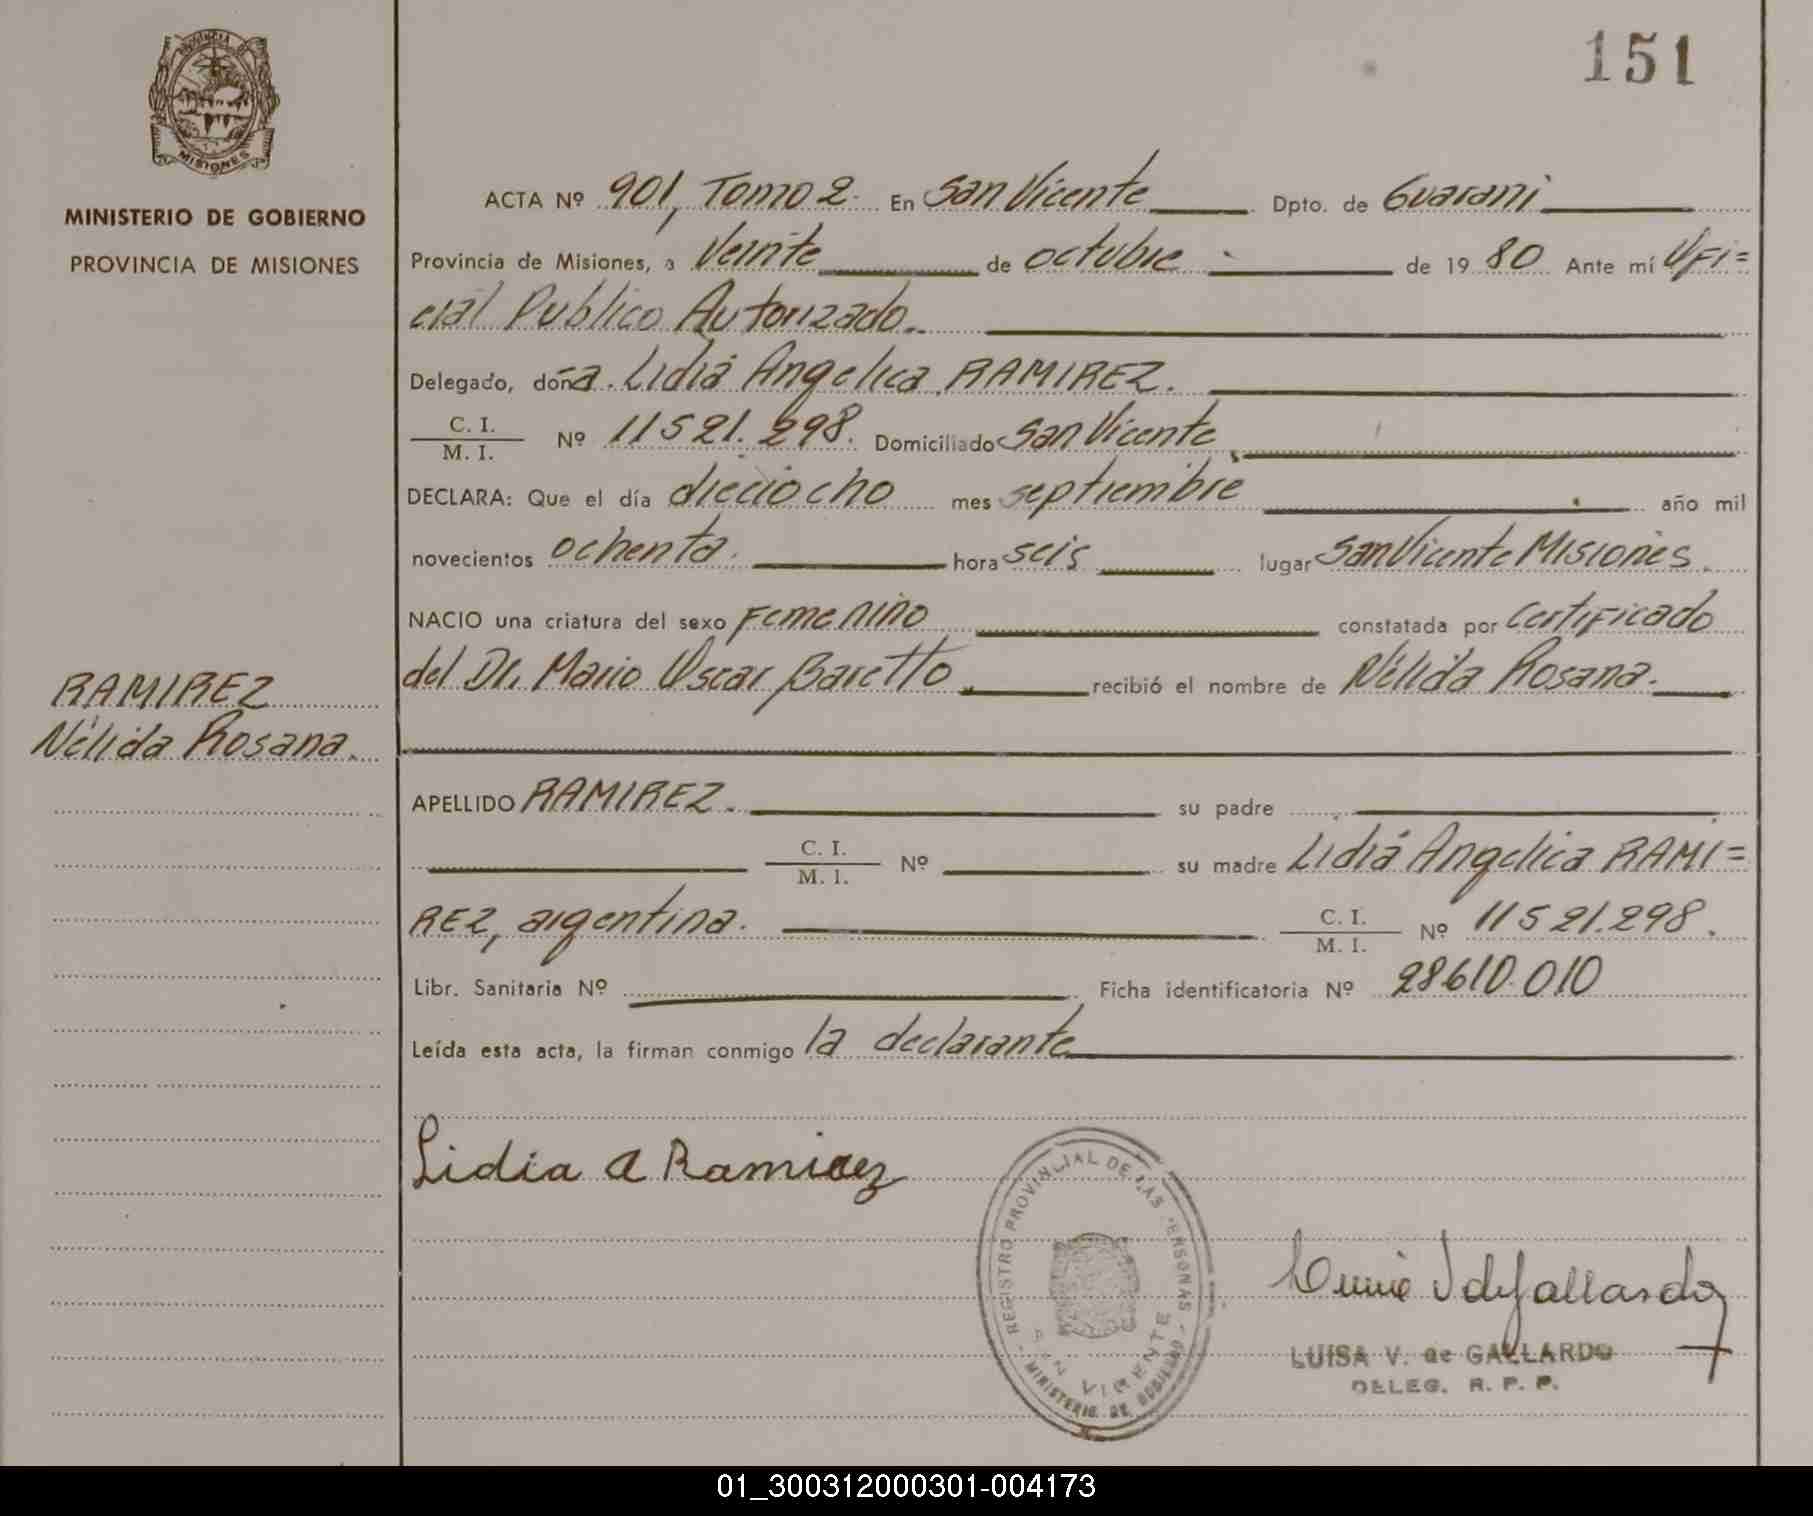 151
PROVINCIA DE
MISIONES
MINISTERIO DE GOBIERNO
PROVINCIA DE MISIONES
ACTA Nº 901, Tomo 2. En San Vicente Dpto. de Guarani
Provincia de Misiones, a Veinte de octubre de 19 80 Ante mí Ofi=
cial Publico Autorizado.
Delegado, doña. Lidia Angelica RAMIREZ.
C. I.
M. I. Nº 11521.298. Domiciliado San Vicente
DECLARA: Que el día dieciocho mes septiembre año mil
novecientos ochenta. hora seis lugar San Vicente Misiones.
NACIO una criatura del sexo Femenino constatada por certificado
del Dr. Mario Oscar Baretto recibió el nombre de Nélida Rosana.
RAMIREZ
Nélida Rosana.
APELLIDO RAMIREZ. su padre
C. I.
M. I. Nº su madre Lidia Angelica RAMI=
REZ, argentina. C. I.
M. I. Nº 11521.298.
Libr. Sanitaria Nº Ficha identificatoria Nº 28610.010
Leída esta acta, la firman conmigo la declarante
Lidia A Ramirez
REGISTRO PROVINCIAL DE LAS PERSONAS
SAN VICENTE
MINISTERIO DE GOBIERNO
LUISA V. de GALLARDO
DELEG. R. P. P.
01_300312000301-004173